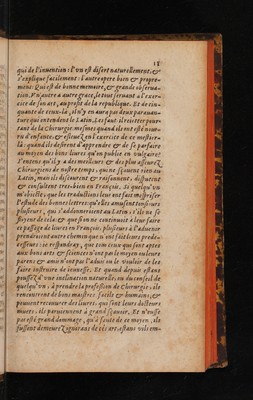 18
qui de l'inuention: l'vn est disert naturellement, &
s'explique facilement: l'autre opere bien & propre-
ment: Qui est de bonne memoire, & grande obserua-
tion. Vn autre a autre grace, le tout seruant a l'exer-
cice de son art, au profit de la republique. Et de cin-
quante de ceux-là, il n'y en aura pas deux parauan-
ture qui entendent le Latin. Les faut-il reietter pour-
tant de la Chirurgie: mesmes quand ils ont esté nour-
ris d'enfance, & esleuez en l'exercice de ce mestier
là: quand ils desirent d'apprendre & de se parfaire
au moyen des bons liures qu'on publie en vulgaire?
I'entens qu'il y a des meilleurs & des plus asseurez
Chirurgiens de nostre temps, qui ne sçauent rien au
Latin, mais ils discourent & raisonnent, disputent
& consultent tres-bien en François. Et quelqu'vn
m'obiecte, que les traductions leur ont fait mespriser
l'estude des bonnes lettres: qu'elles amusent tousiours
plusieurs, qui s'addonneroient au Latin, s'ils ne se
fioyent de cela & que si on ne continuoit à leur faire
ce passage de liures en François, plusieurs à l'aduenir
prendroient autre chemin que n'ont fait leurs prede-
cesseurs: ie respondray, que tous ceux qui sont aptes
aux bons arts & sciences n'ont pas le moyen ou leurs
parens & amis n'ont pas l'aduis ou le vouloir de les
faire instruire de ieunesse. Et quand depuis estans
poussez d'vne inclination naturelle, ou du conseil de
quelqu'vn, à prendre la profession de Chirurgie, ils
rencontrent de bons maistres, facils & humains, &
peuuent recouurer des liures, qui sont leurs docteurs
muets, ils paruiennent à grand sçauoir. Et n'eust
pas esté grand dommage, qu'à faute de ce moyen, ils
fussent demeurez ignorans de cest art, estans vils em-